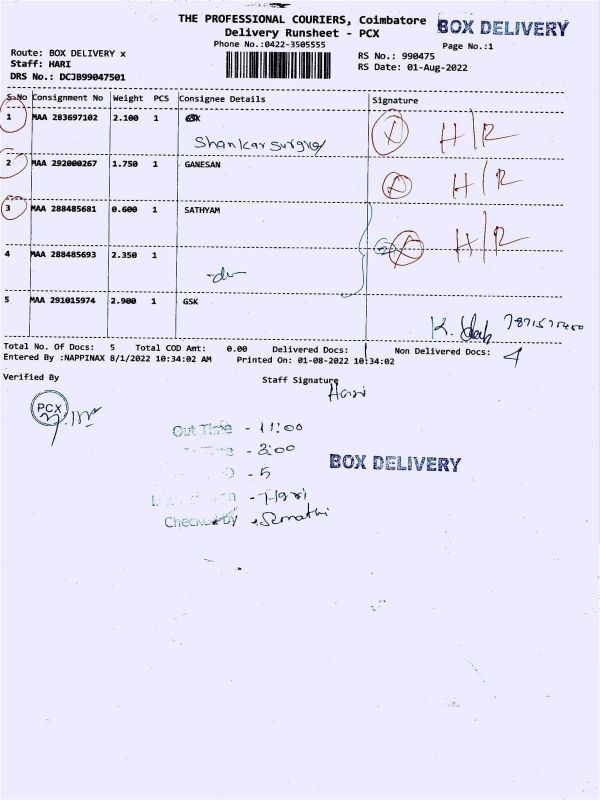 THE PROFESSIONAL COURIERS, Coimbatore
BOX DELIVERY
Delivery Runsheet - PCX
Phone No.:0422-3505555
Page No.:1
Route: BOX DELIVERY x
RS No.: 990475
Staff: HARI
RS Date: 01-Aug-2022
DRS No.: DCJB99047501
S.No Consignment No Weight PCS Consignee Details Signature
1 MAA 283697102 2.100 1 H/R
Shankar Surgry
2 MAA 292000267 1.750 1 GANESAN H/R
3 MAA 288485681 0.600 1 SATHYAM H/R
4 MAA 288485693 2.350 1
5 MAA 291015974 2.900 1 GSK
Total No. Of Docs: 5 Total COD Amt: 0.00 Delivered Docs: 1 Non Delivered Docs: 4
Entered By :NAPPINAX 8/1/2022 10:34:02 AM Printed On: 01-08-2022 10:34:02
Verified By Staff Signature
Hari
PCX
Out Time - 11:00
- 3:00
- 5
BOX DELIVERY
- Hari
Checked by